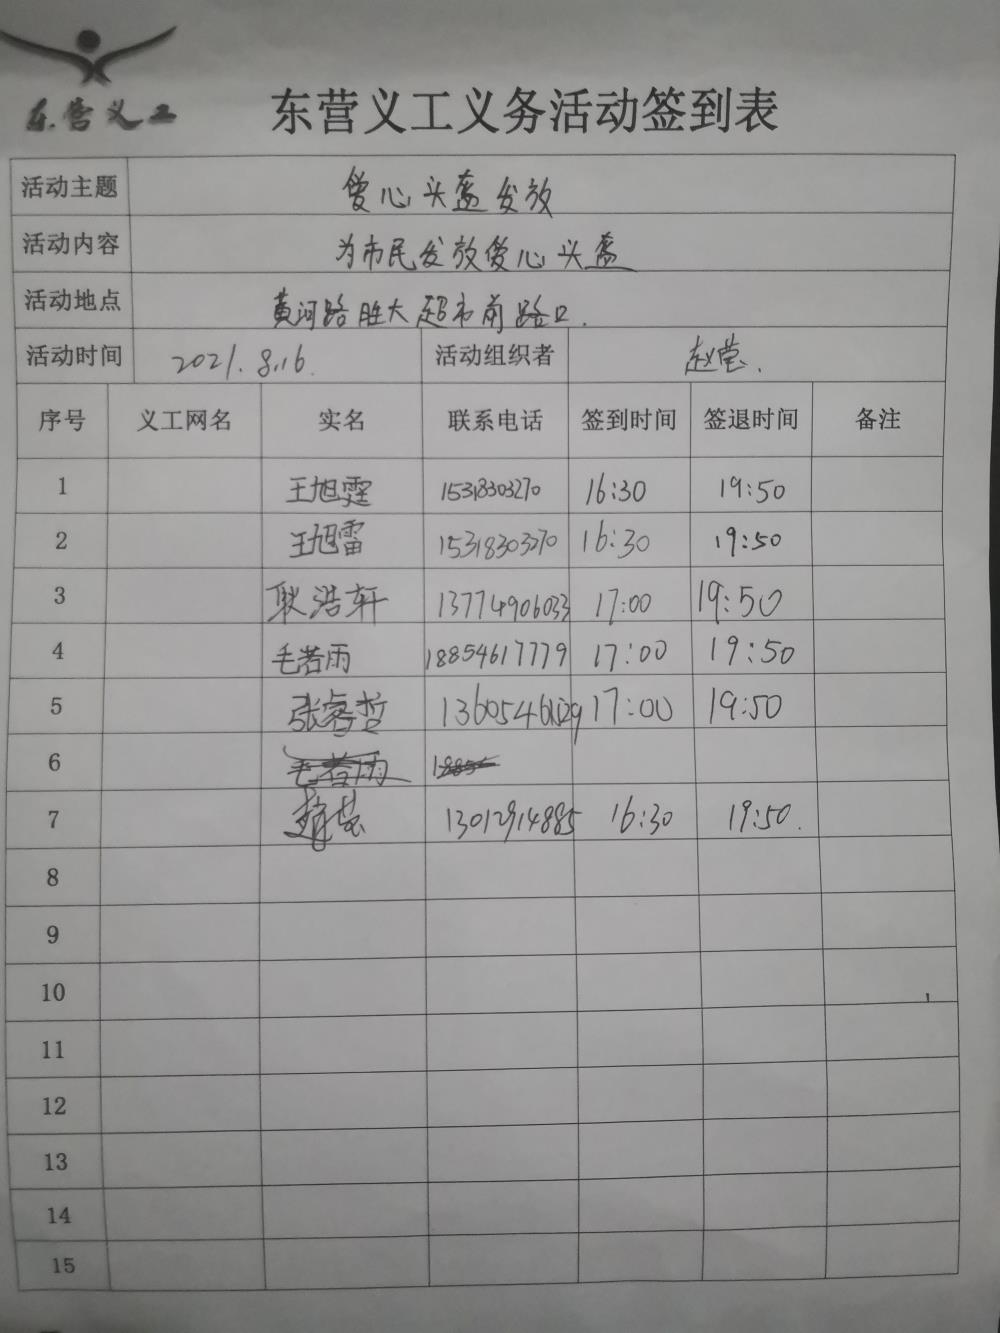 东营义工
东营义工义务活动签到表
活动主题 爱心头盔发放
活动内容 为市民发放爱心头盔
活动地点 黄河路胜大超市前路口.
活动时间 2021.8.16. 活动组织者 赵莹.
序号 义工网名 实名 联系电话 签到时间 签退时间 备注
1 王旭霆 15318303270 16:30 19:50
2 王旭雷 15318303270 16:30 19:50
3 耿浩轩 13774906033 17:00 19:50
4 毛若雨 18854617779 17:00 19:50
5 张睿哲 17:00 19:50
6 毛若雨
7 赵莹 13012914885 16:30 19:50.
8
9
10
11
12
13
14
15